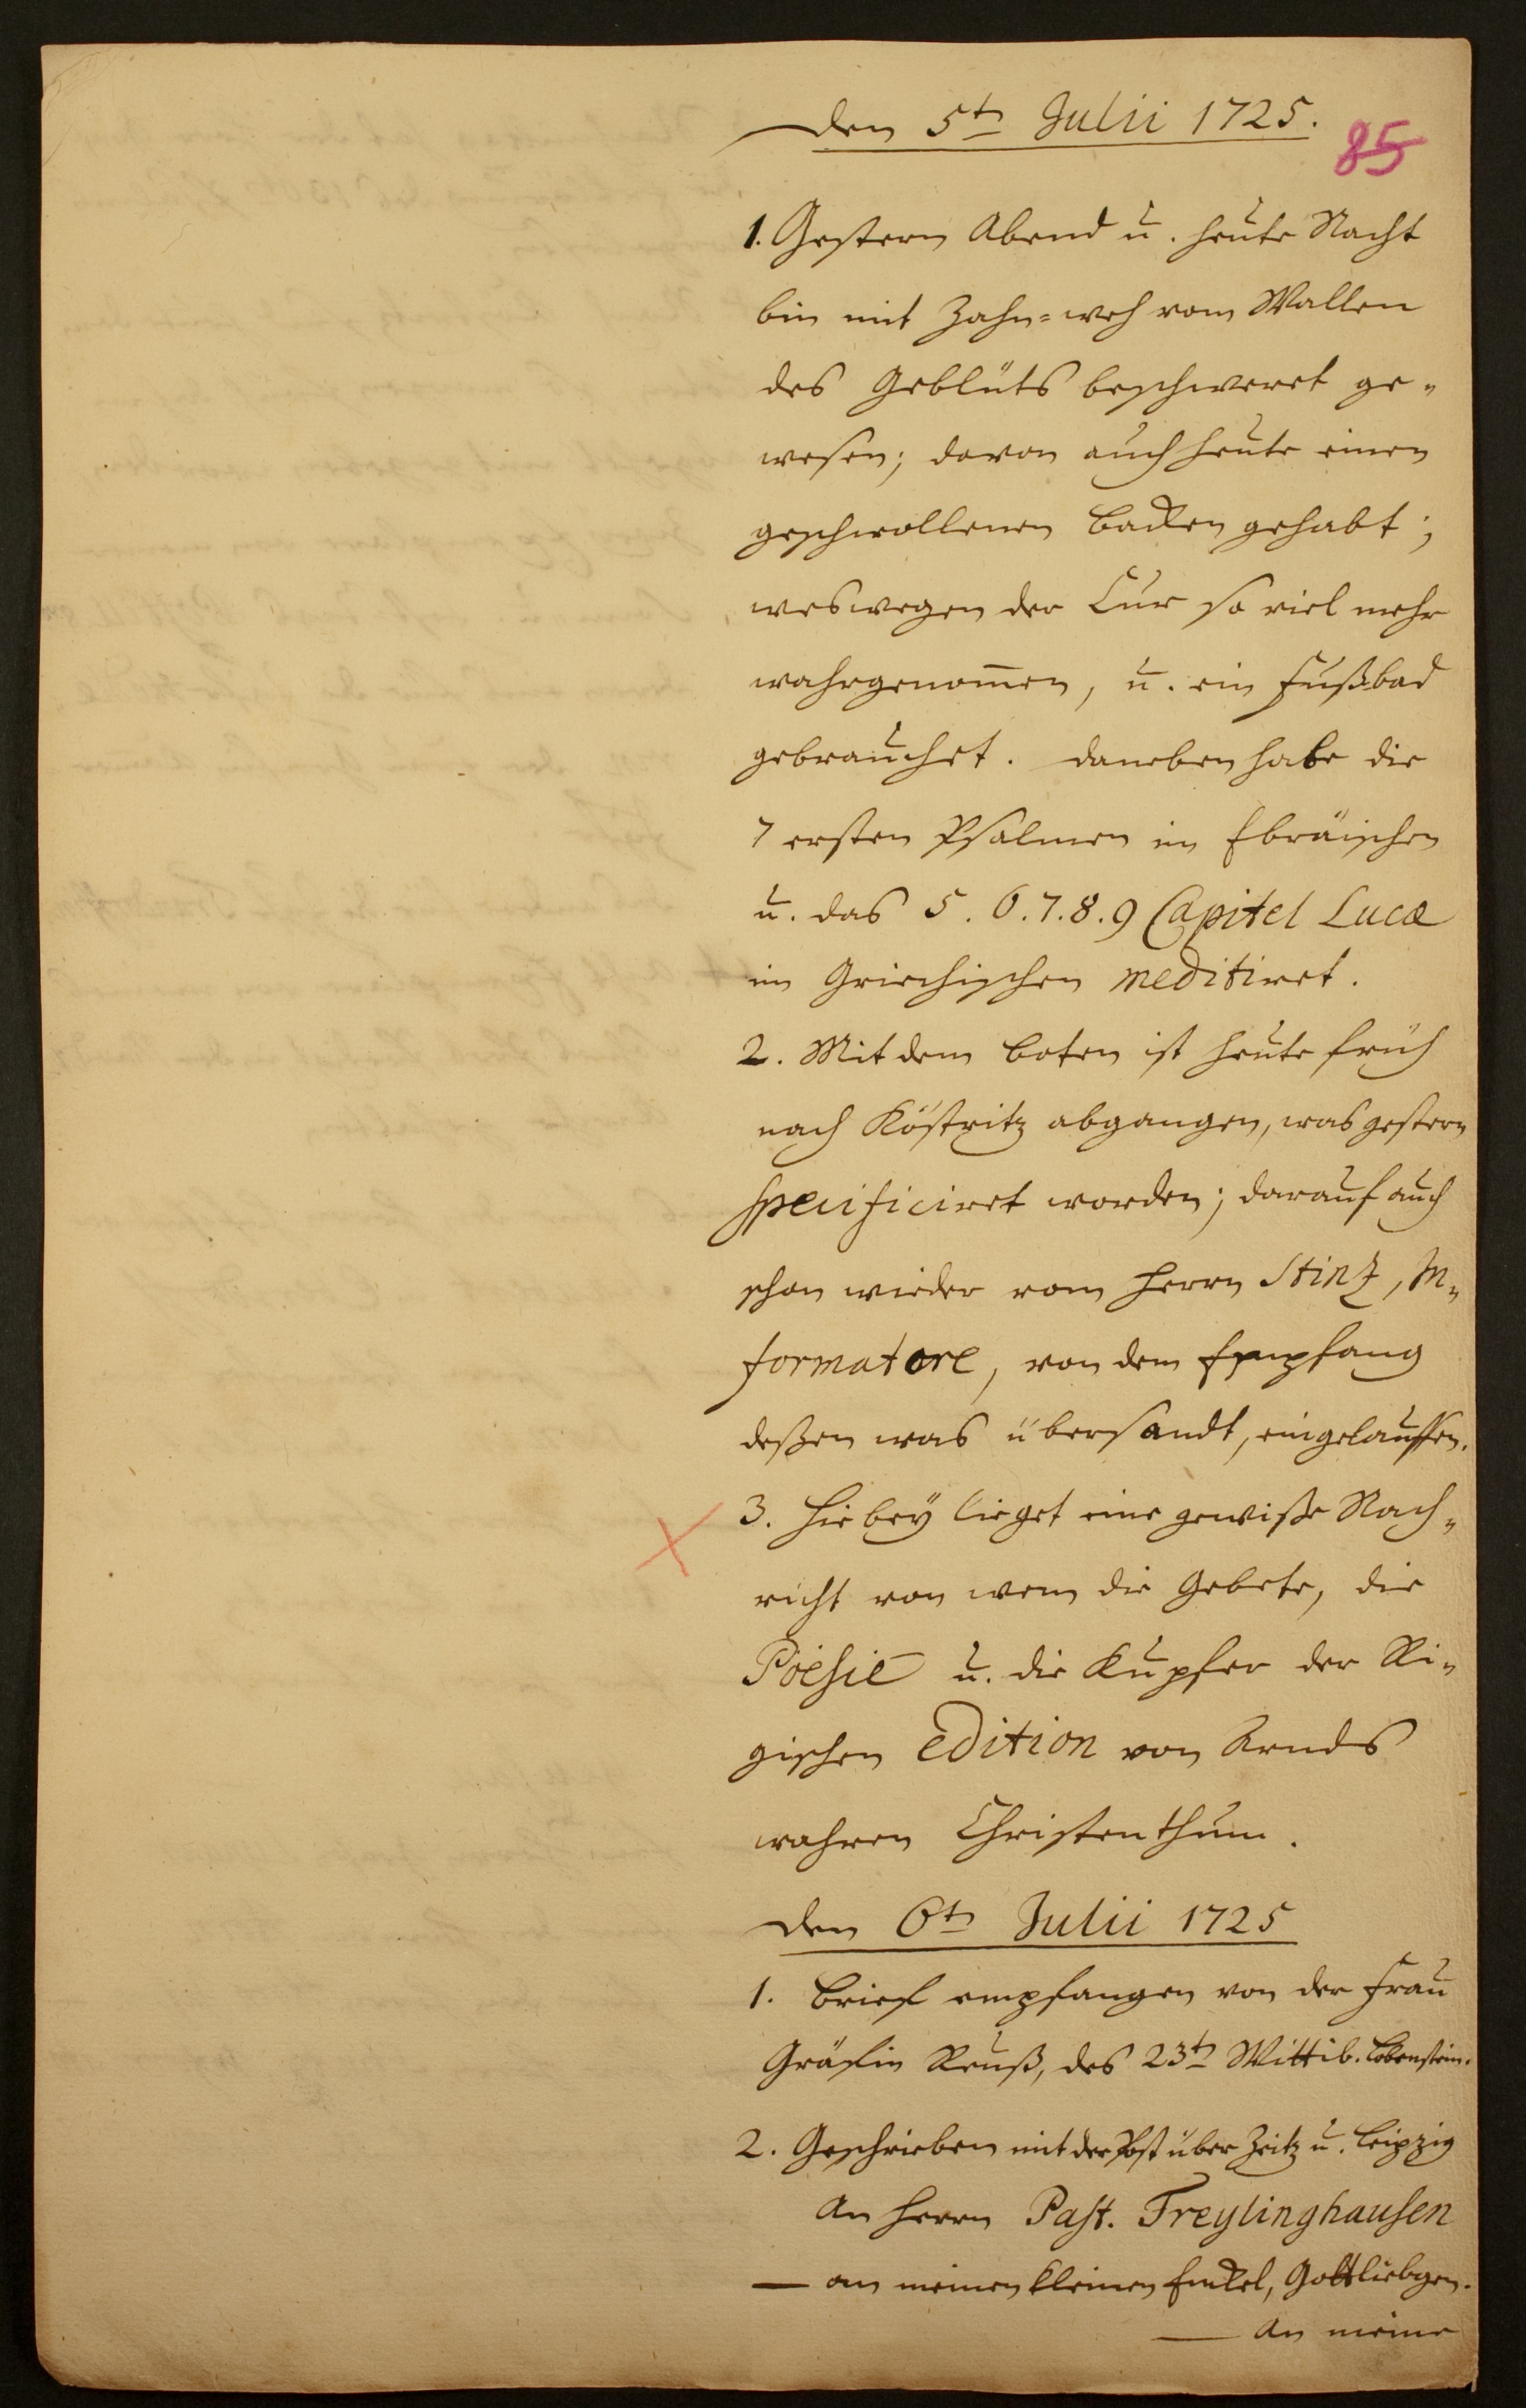 den 5t. Julii 1725.
85
1. Gestern Abend u. heute Nacht
bin mit Zahn=weh vom Wallen
des Geblüts beschweret ge-
wesen; davon auch heute einen
geschwollenen Backen gehabt;
weswegen der Cur so viel mehr
wahrgenom̄en, u. ein Fußbad
gebrauchet. Daneben habe die
7 ersten Psalmen im Ebräischen
u. das 5. 6. 7. 8. 9 Capitel Lucæ
im Griechischen meditiret.
2. Mit dem Boten ist heute früh
nach Köstritz abgangen, was gestern
specificiret worden; darauf auch
schon wieder vom Herrn Stinz, In-
formatore, von dem Empfang
deßen was übersandt, eingelauffen.
3. Hiebey lieget eine gewiße Nach-
richt von wem die Gebete, die
Poësie u. die Kupfer der Ri-
gischen edition von Arnds
wahren Christenthum.
den 6t. Julii 1725
1. Brief empfangen von der Frau
Gräfin Reuß, des 23t. Wittib. Lobenstein.
2. Geschrieben mit der Post über Zeitz u. Leipzig
An Herrn Past. Freylinghausen
— an meinen kleinen Enckel, Gottliebgen.
— An meine